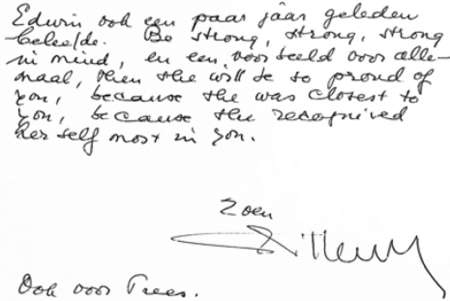 Edwin ook een paar jaar geleden
beleefde. Be strong, strong, strong
in mind, en een voorbeeld voor alle-
maal, then she will be so proud of
you, because she was closest to
you, because she recognised
herself most in you.
Zoen
Ook voor Trees.